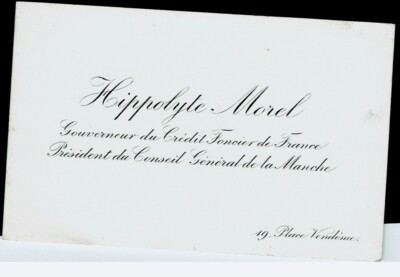 Hippolyte Morel
Gouverneur du Crédit Foncier de France
Président du Conseil Général de la Manche
19, Place Vendôme.